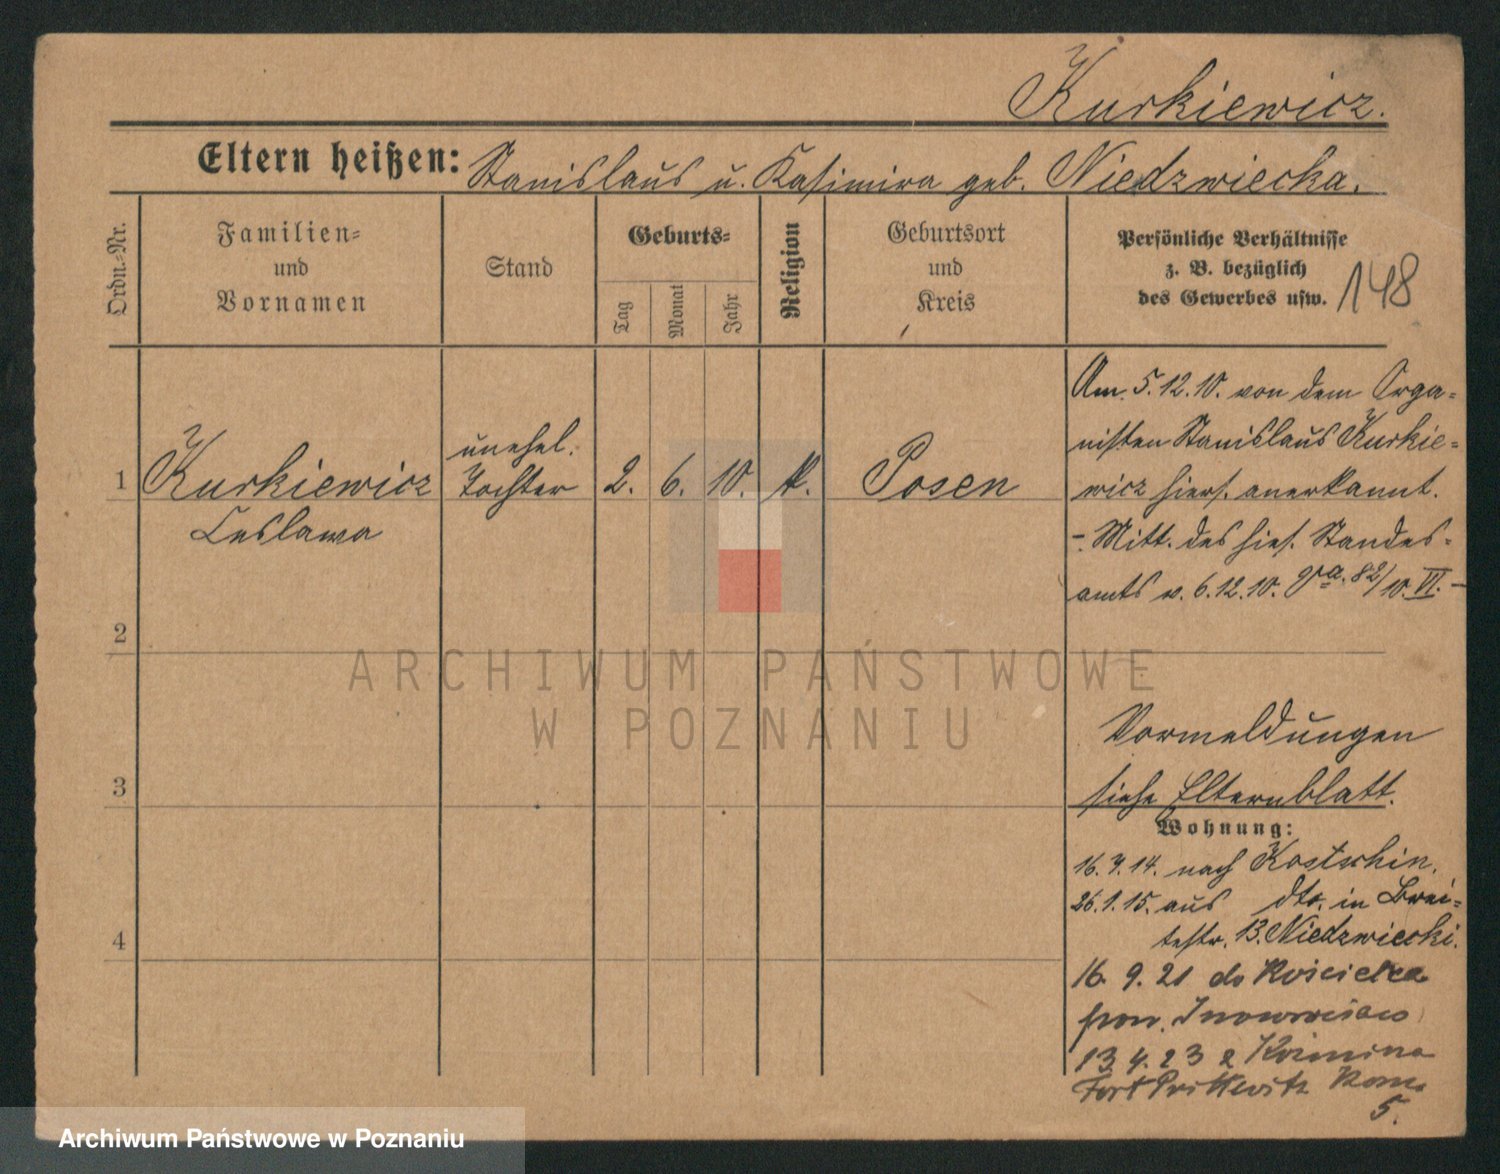 Kurkiewicz.
Eltern heißen: Stanislaus u. Kasimira geb. Niedzwiecka.
Ordn.-Nr.
Familien-
und
Vornamen
Stand
Geburts-
Tag
Monat
Jahr
Religion
Geburtsort
und
Kreis
Persönliche Verhältnisse
z. B. bezüglich
des Gewerbes usw.
148
1 Kurkiewicz unehel. Tochter 2. 6. 10. k. Posen
Ceslawa
Am 5.12.10. von dem Orga-
nisten Stanislaus Kurkie-
wicz hiers. anerkannt.
- Mitt. des hies. Standes-
amts v. 6.12.10. 82/10. VI. -
2
Vormeldungen
siehe Elternblatt.
3
Wohnung:
16. 7. 14. nach Kostschin.
26. 1. 15. aus dto. in Brei-
testr. 13. Niedzwiecki.
4
16. 9. 21 do
13 4. 23 z
Fort Prittwitz
5.
ARCHIWUM PAŃSTWOWE
W POZNANIU
Archiwum Państwowe w Poznaniu